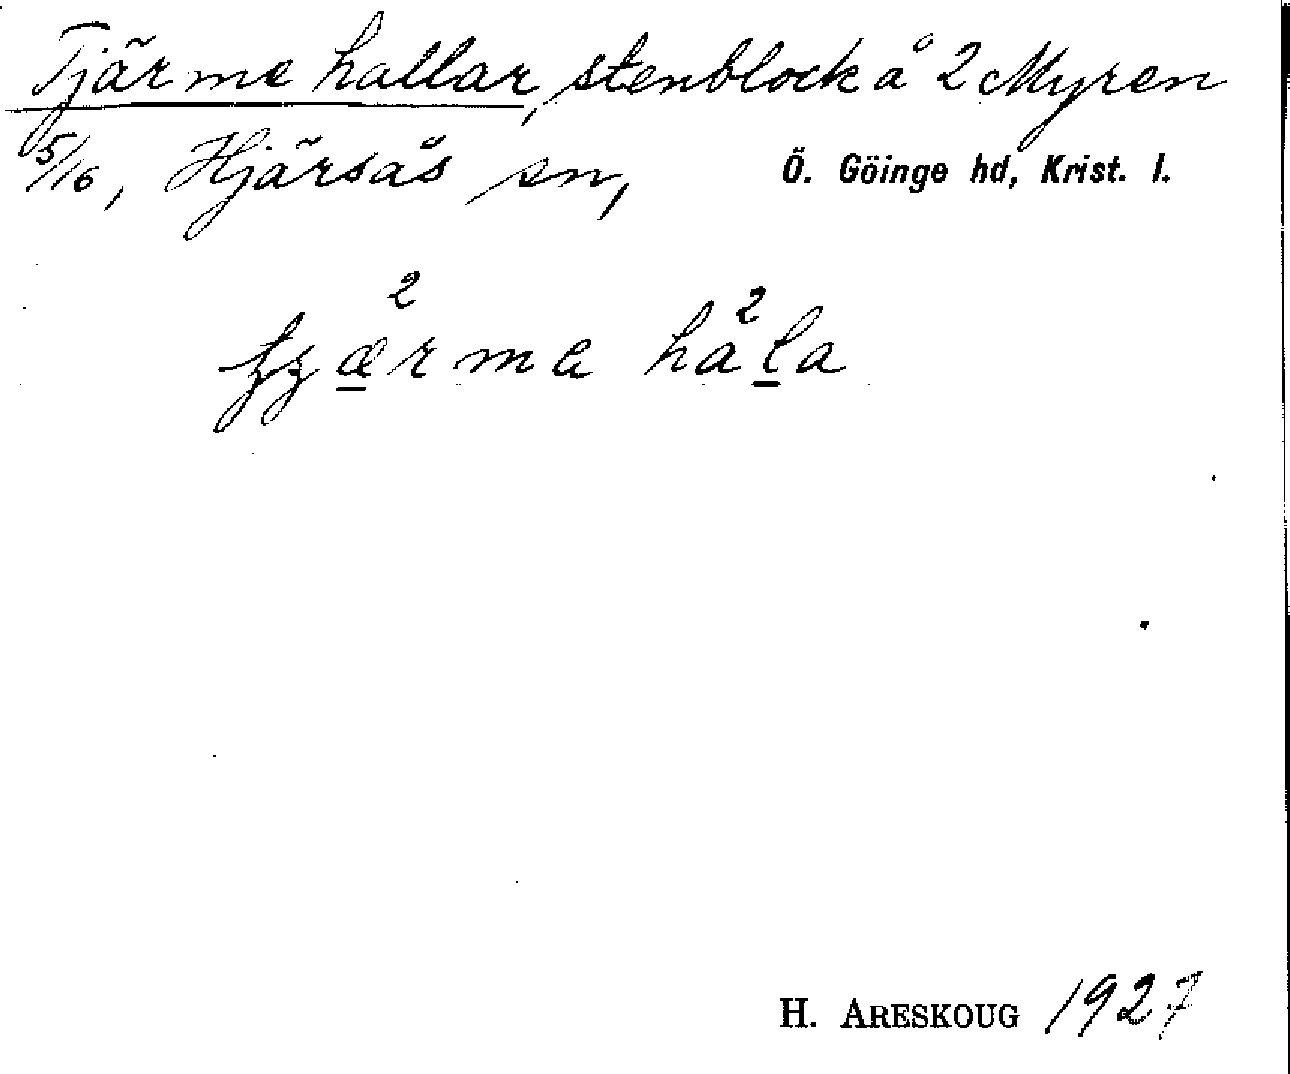 Tjärme hallar, stenblock å 2 Myren
5/16, Hjärsås sn, Ö. Göinge hd, Krist. l.
håla
H. ARESKOUG 1927